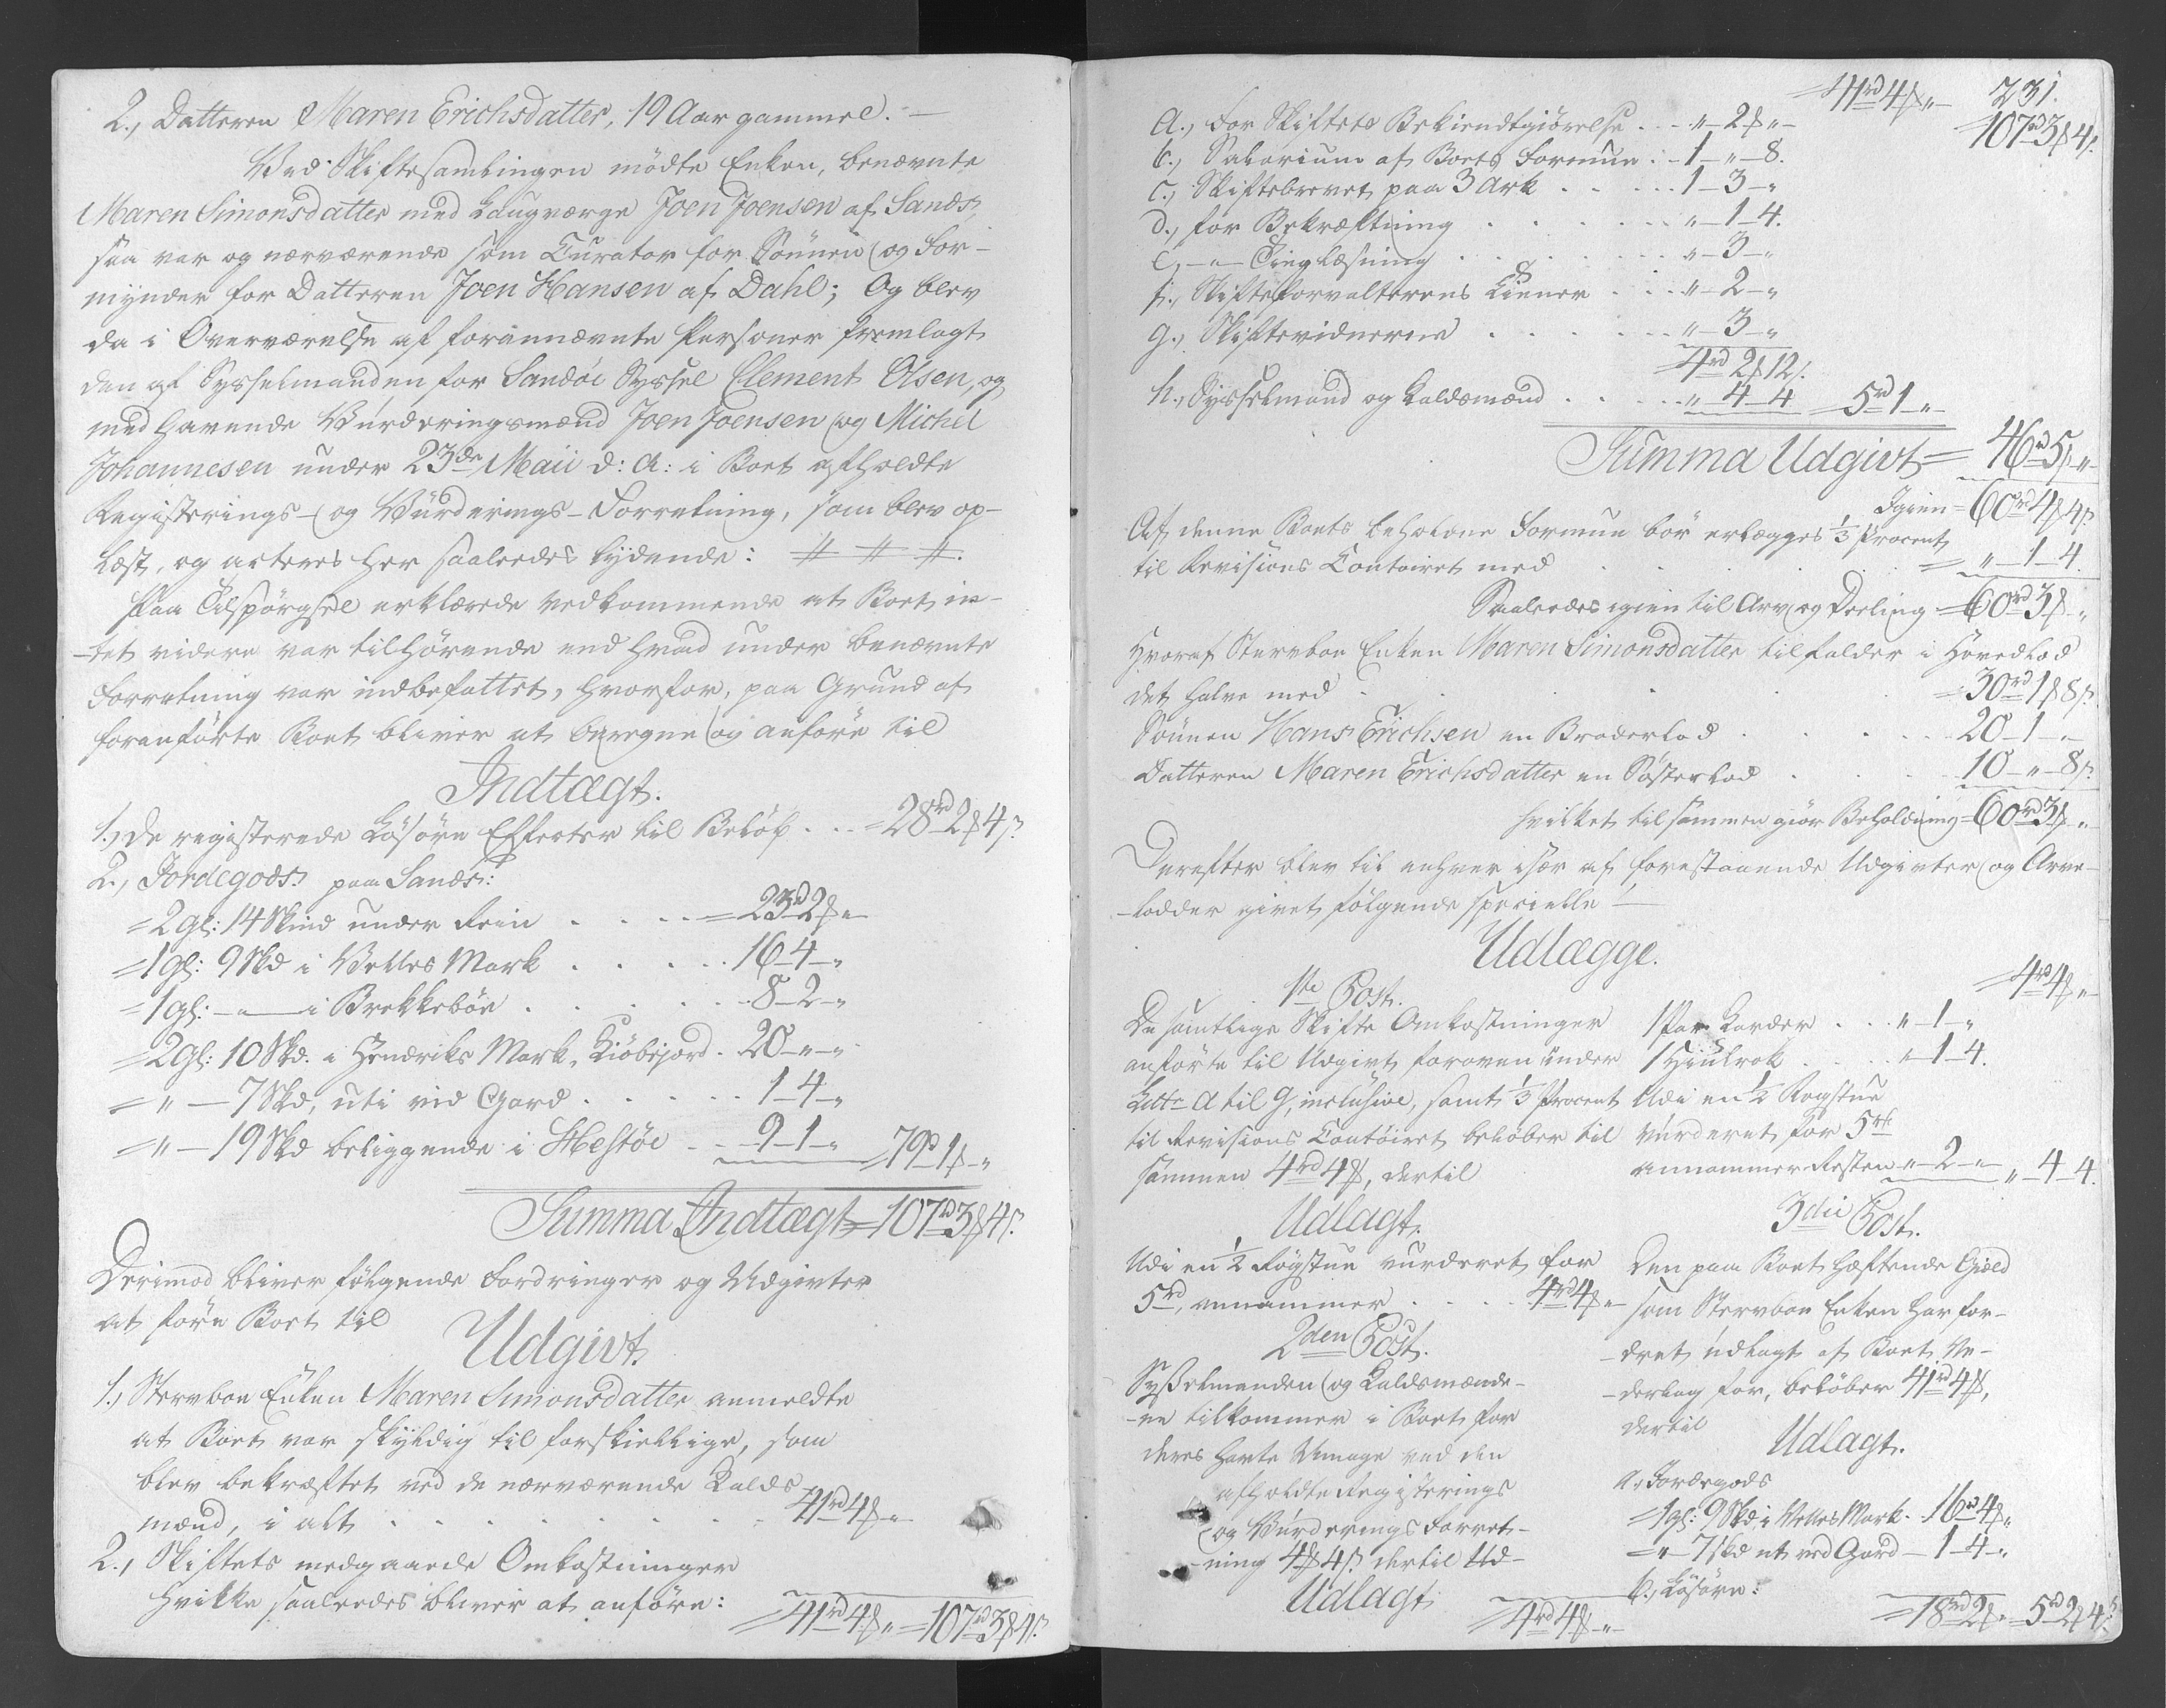 2., Datteren Maren Erichsdatter, 19 Aar gammel. —
Ved Skiftesamlingen mödte Enken, benævnte
Maren Simonsdatter med Laugværge Joen Joensen af Sands,
saa var og nærværende som Curator for Sönnen og For-
mynder for Datteren Joen Hansen af Dahl; Og blev
da i Overværelse af forannævnte Personer fremlagt
den af Sysselmanden for Sandöe Syssel Clement Olsen, og
medhavende Vurderingsmænd Joen Joensen og Michel
Johannesen under 23de Maii d: A: i Boet afholdte
Registerings- og Vurderings-Forretning, som blev op-
læst, og acteres her saaledes lydende: # # #.
Paa Tilspörgsel erklærede vedkommende at Boet in-
-tet videre var tilhörende end hvad under benævnte
Forretning var indbefattet, hvorfor, paa Grund af
foranförte Boet bliver at beregne og anföre til
Indtægt.
1., De registerede Lösöre Effecter til Belöb . . . = 28rd 2ß 4s.
2., Jordegods paa Sands:
= 2 gl: 14 Skind under Rein . . . . = 23rd 2ß „
= 1 gl: 9 Skd i Velles Mark . . . . . 16 – 4 – „
= 1 gl: – „ – i Brekkebön . . . . . . 8 – 2 – „
= 2 gl: 10 Skd. i Hendriks Mark, Kiöbejord . 20 – „ – „
= „ – 7 Skd, uti vid Gard . . . . . . 1 – 4 – „
= „ – 19 Skd beliggende i Hestöe . . 9 – 1 – „ = 79rd 1ß „
Summa Indtægt = 107rd 3ß 4s.
Derimod bliver fölgende Fordringer og Udgivter
at före Boet til
Udgivt.
1., Stervboe Enken Maren Simonsdatter anmeldte
at Boet var skyldig til forskiellige, som
blev bekræftet ved de nærværende Kalds-
mænd, i alt . . . . . . . . 41rd 4ß „
2., Skiftets medgaaede Omkostninger
hvilke saaledes bliver at anföre:
= 41rd 4ß „ = 107rd 3ß 4s.
231.
= 41rd 4ß „ = 107rd 3ß 4s.
a., For Skiftets Bekiendtgiörelse . . . „ – 2ß „
b., Salarium af Boets Formue . . 1 – „ – 8.
c., Skiftebrevet paa 3 Ark . . . . . 1 – 3 – „
d., for Bekræftning . . . . . . „ – 1 – 4.
e., – „ – Tinglæsning . . . . . . „ – 3 – „
f., Skifteforvalterens Tiener . . . „ – 2 – „
g., Skiftevidnerne . . . . . . „ – 3 – „
4rd 2ß 12s.
h., Sysselmand og Kaldsmænd . . . . „ 4 – 4 = 5rd 1 – „
Summa Udgivt = 46rd 5ß „
Igien = 60rd 4ß 4s.
Af denne Boets beholdne Formue bör erlægges 1/3 Procent
til Revisions Contoiret med . . . . . = „ – 1 – 4.
Saaledes igien til Arv og Deeling = 60rd 3ß „
Hvoraf Stervboe Enken Maren Simonsdatter tilfalder i Hovedlod
det halve med . . . . . . = 30rd 1ß 8s.
Sönnen Hans Erichsen en Broderlod . . . . . . 20 – 1 – „
Datteren Maren Erichsdatter en Sösterlod . . . . 10 – „ – 8s.
hvilket tilsammen giör Beholdning = 60rd 3ß „
Derefter blev til enhver især af forestaaende Udgivter og Arve-
-lodder givet fölgende specielle —
Udlægge.
1te Post.
De samtlige Skifte Omkostninger
anförte til Udgivt foroven under
Littr A til G, inclusive, samt 1/3 Procent
til Revisions Contoiret belöber til
sammen 4rd 4ß, dertil
Udlagt.
Udi en 1/2 Rögstue vurderet for
5rd, annammer . . . . 4rd 4ß „
2den Post.
Sysselmanden og Kaldsmænde-
-ne tilkommer i Boet for
deres havte Umage ved den
afholdte Registerings
og Vurderings Forret-
-ning 4ß 4s. dertil Ud-
Udlagt.
= 4rd 4ß „
= 4rd 4ß „
1 Par Karder . . . „ – 1 – „
1 Hiulrok . . . . „ – 1 – 4.
Udi en 1/2 Rogstue
vurderet for 5rd
annammer Resten „ – 2 – „ „ – 4 – 4.
3die Post.
Den paa Boet hæftende Gield
som Stervboe Enken har for-
-dret udlagt af Boet Ve-
-derlag for, belöber 41rd 4ß,
dertil
Udlagt.
a., Jordegods
= 1 gl: 9 Skd i Velles Mark . 16rd 4ß „
= „ – 7 Skd ut ved Gard – 1 – 4 – „
b., Lösöre:
= 18rd 2ß „ = 5rd 2ß 4s.